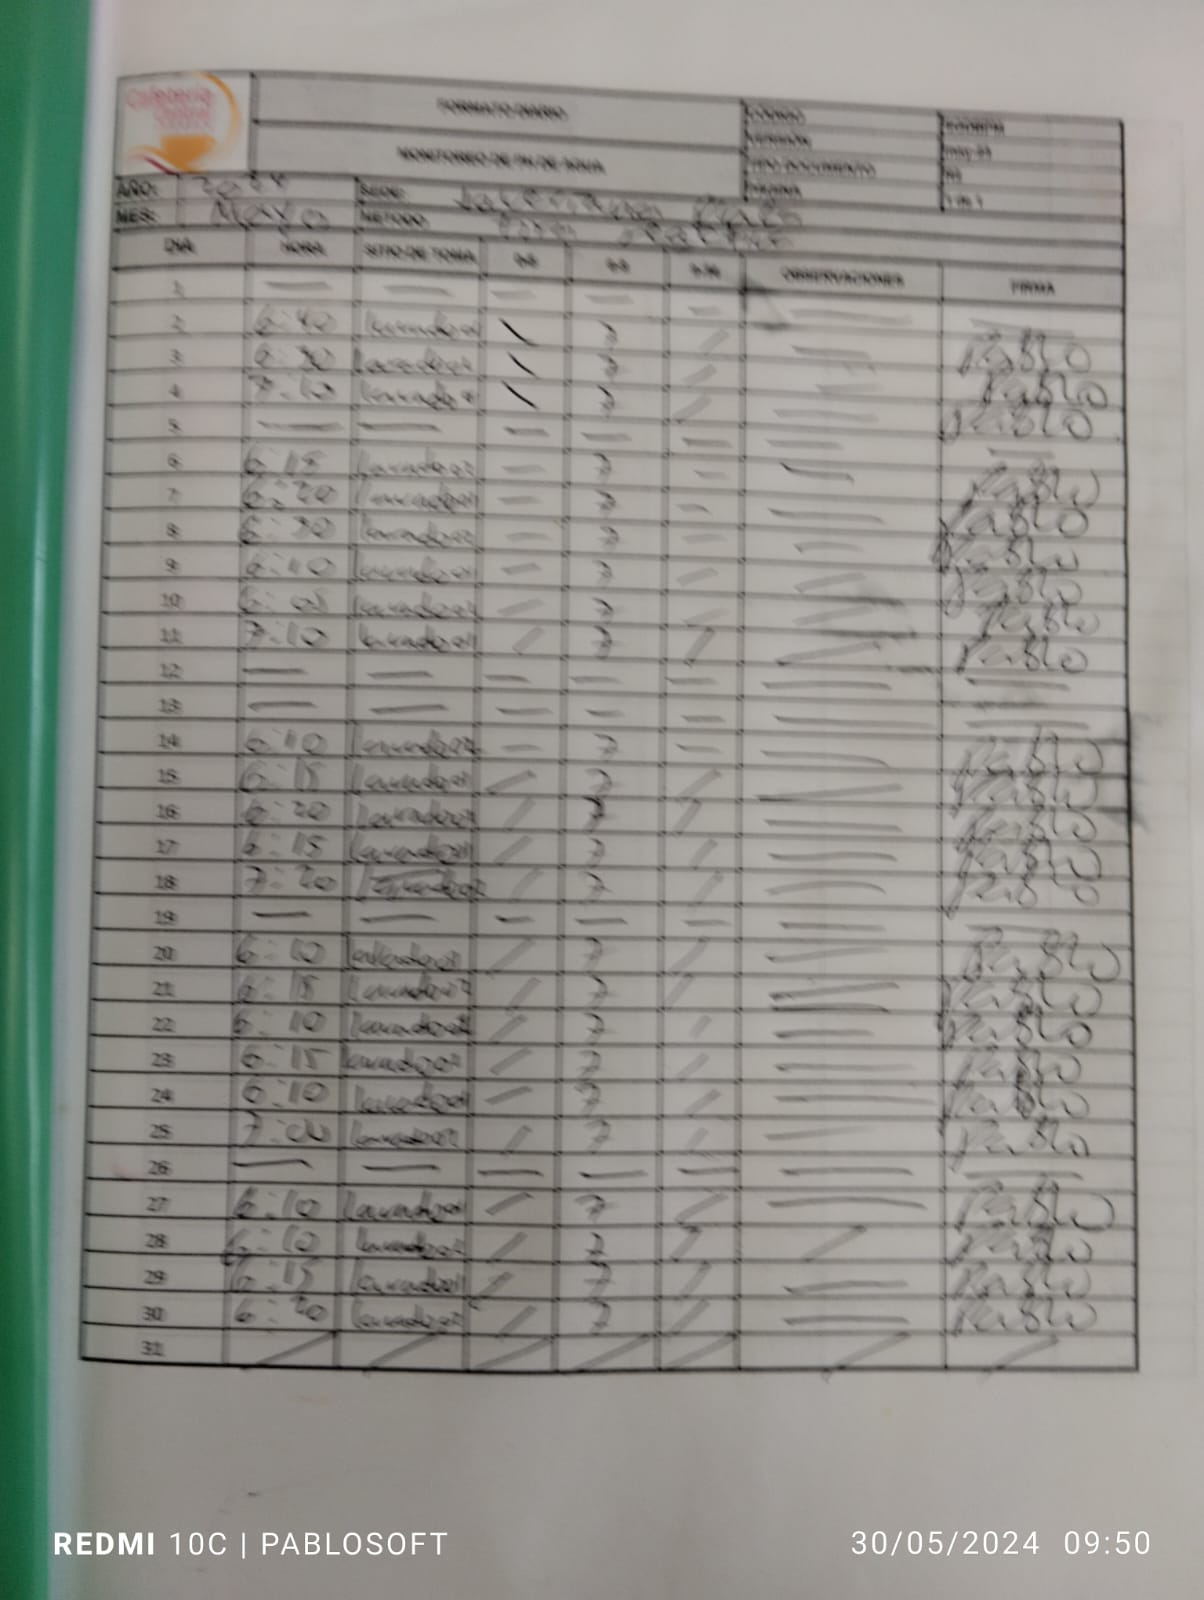 Cafeteria
FORMATO DIARIO
CODIGO
VERSION
MONITOREO DE PH DE AGUA
TIPO DOCUMENTO
PAGINA
1 de 1
AÑO: 2024 SEDE:
MES: Mayo METODO:
DIA HORA SITIO DE TOMA OBSERVACIONES FIRMA
1 — — — — — —
2 6:40 lavadero 7 Pablo
3 6:30 lavadero 7 Pablo
4 7:10 lavadero 7 Pablo
5 — — — — — —
6 6:15 lavadero — 7 — Pablo
7 6:20 lavadero — 7 — Pablo
8 6:30 lavadero — 7 — Pablo
9 6:10 lavadero — 7 — Pablo
10 6:05 lavadero 7 Pablo
11 7:10 lavadero 7 Pablo
12 — — — — — —
13 — — — — — —
14 6:10 lavadero — 7 — Pablo
15 6:15 lavadero 7 Pablo
16 6:20 lavadero 7 Pablo
17 6:15 lavadero 7 Pablo
18 7:20 lavadero 7 Pablo
19 — — — — — —
20 6:10 lavadero 7 Pablo
21 6:15 lavadero 7 Pablo
22 6:10 lavadero 7 Pablo
23 6:15 lavadero 7 Pablo
24 6:10 lavadero 7 Pablo
25 7:00 lavadero 7 Pablo
26 — — — — — —
27 6:10 lavadero 7 Pablo
28 6:10 lavadero 7 Pablo
29 6:15 lavadero 7 Pablo
30 6:20 lavadero 7 Pablo
31
REDMI 10C | PABLOSOFT 30/05/2024 09:50